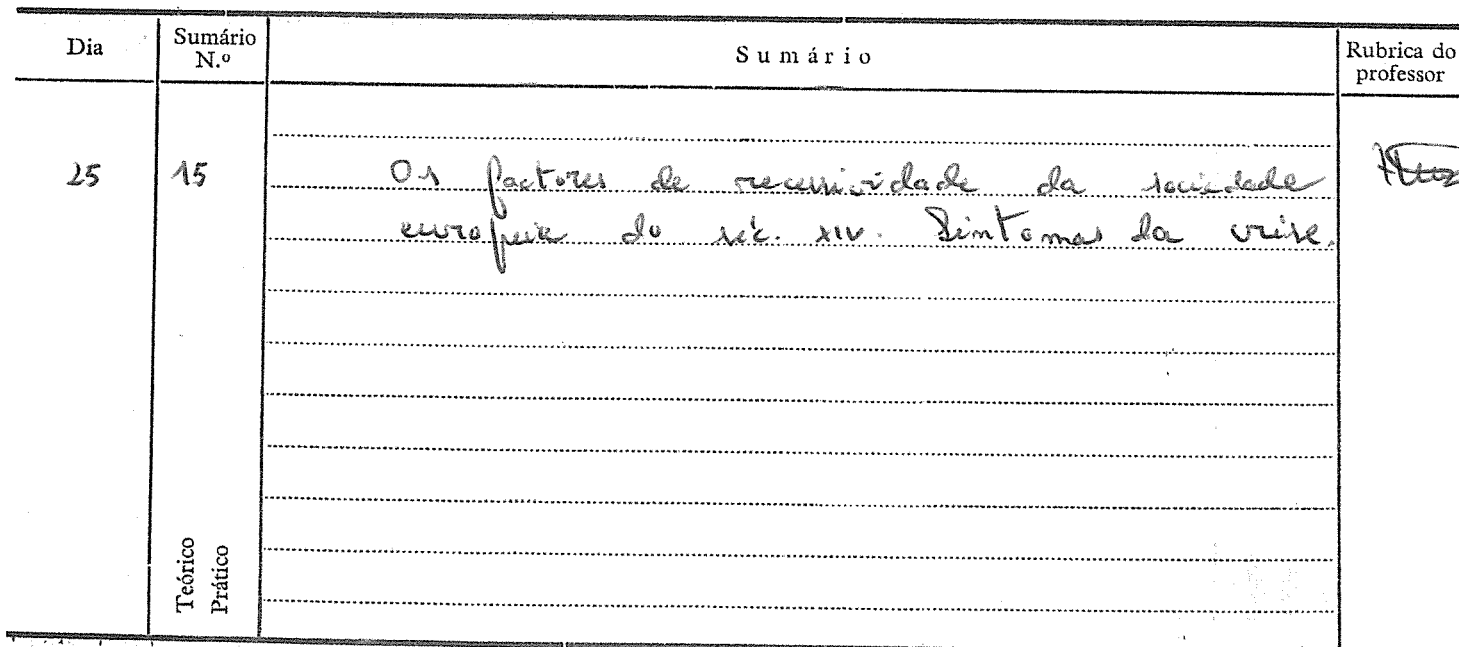 Dia
Sumário N.º
Sumário
Rubrica do professor
25
15
Os factores de recessividade da sociedade
europeia do séc. XIV. Sintomas da crise.
Teórico
Prático